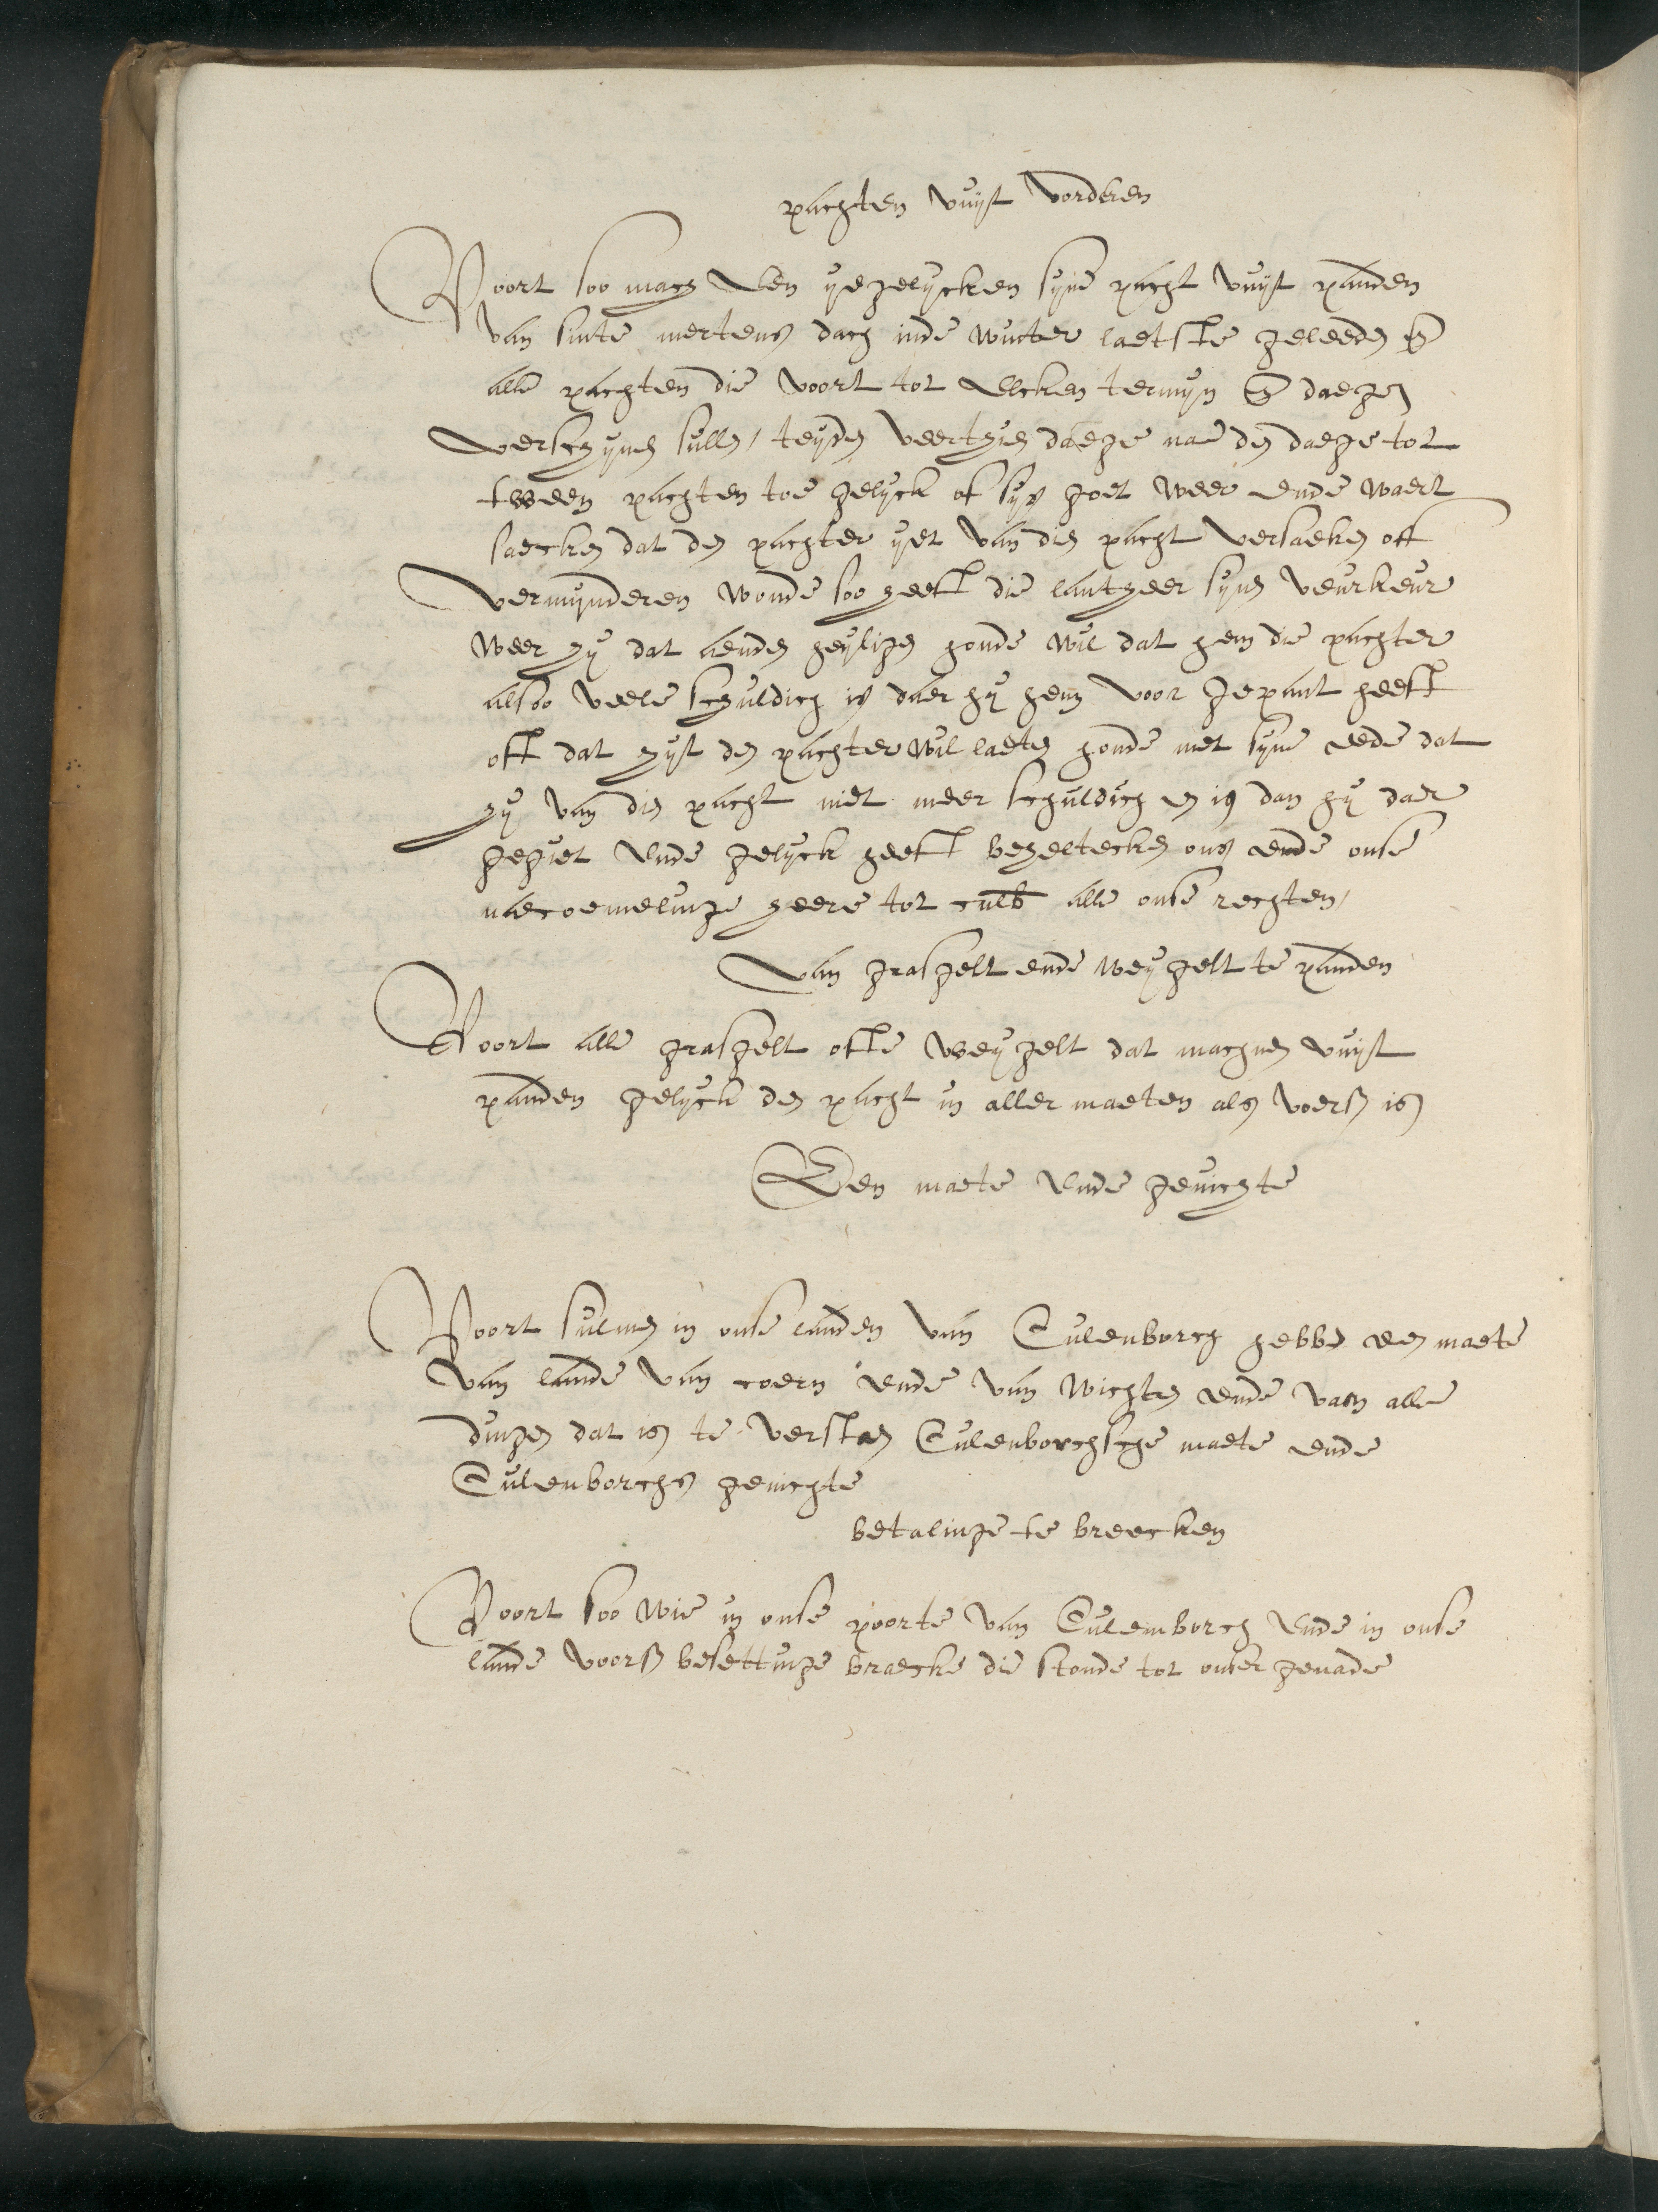 pachten vuyt vorderen
Voort soo mach een ijegelijcken sijne pacht vuijt panden
van sinte mertens dach inde winter laetste geleeden en
alle pachten die voort tot elcken termijn en daegen
verschijnen sullen / teijnden veerthien daege nae den daege tot
tween pachten toe gelijck of sijs goet weer ende waert
saecken dat den pachter ijet van dien pacht versaeken oft
vermijnderen wonde soo heeft die lantheer sijnen veurkeur
weer hij dat aenden heyligen honde wil dat hem die pachter
alsoo veele schuldich is daer hij hem voor gepant heeft
oft dat hijt den pachter wil laeten honde met sijne eede dat
hij van dien pacht niet meer schuldich en is dan hij daer
gegiet ende gelijck heeft beheltecken ons ende onse
naecoemelinge heere tot culb alle onse rechten /
Van grasgelt ende weijgelt te panden
Voort alle grasgelt ofte weijgelt dat machmen vuijt
panden gelijck den pacht in aller maeten als voersz is
Een maete ende gewichte
Voort sulmen in onse landen van Culenborch hebben een maete
van lande van coern ende van wichten ende van alle
dingen dat is te verstaen Culenborchsche maete ende
Culenborchs gewichte
betalinge te breecken
Voort soo wie in onse poorte van Culemborch ende in onse
lande voorsz besettinge braecke die stonde tot onser genade